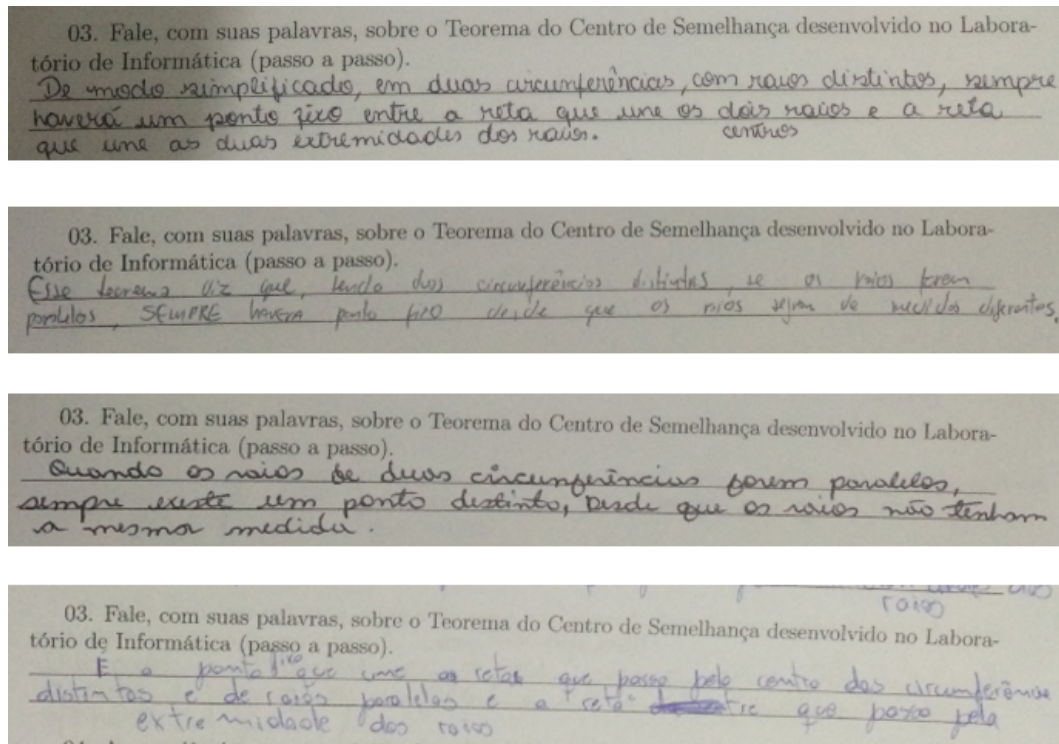 03. Fale, com suas palavras, sobre o Teorema do Centro de Semelhança desenvolvido no Labora-
tório de Informática (passo a passo).
De modo simplificado, em duas circunferências, com raios distintos, sempre
haverá um ponto fixo entre a reta que une os dois raios e a reta
centros
que une as duas extremidades dos raios.
03. Fale, com suas palavras, sobre o Teorema do Centro de Semelhança desenvolvido no Labora-
tório de Informática (passo a passo).
Esse teorema diz que, tendo duas circunferências distintas, se os raios forem
paralelos, SEMPRE haverá ponto fixo desde que os raios sejam de medidas diferentes.
03. Fale, com suas palavras, sobre o Teorema do Centro de Semelhança desenvolvido no Labora-
tório de Informática (passo a passo).
Quando os raios de duas circunferências forem paralelos,
sempre existe um ponto distinto, Desde que os raios não tenham
a mesma medida.
raios
03. Fale, com suas palavras, sobre o Teorema do Centro de Semelhança desenvolvido no Labora-
tório de Informática (passo a passo).
E o ponto fixo que une as retas que passa pelo centro das circunferência
distintas e de raios paralelos e a reta que passa pela
extremidade dos raios